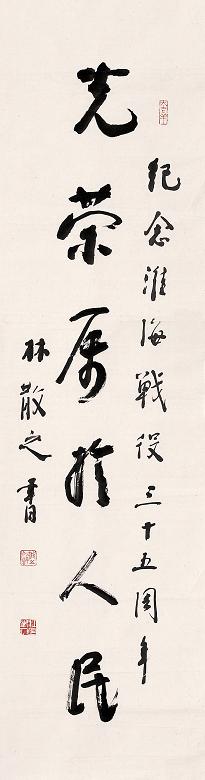 纪念淮海戰役三十五周年
光荣属於人民
林散之書